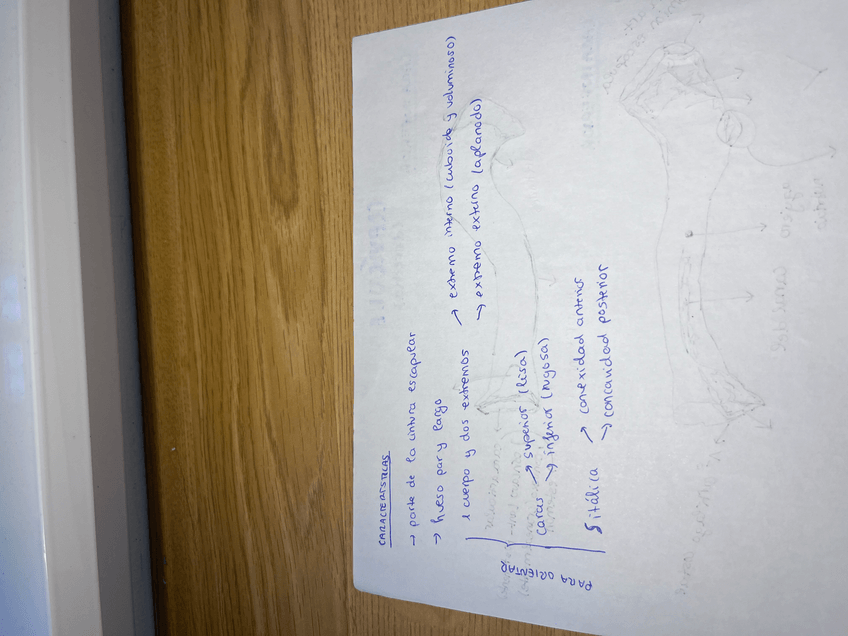 CARACTERÍSTICAS
→ parte de la cintura escapular
→ hueso par y largo
1 cuerpo y dos extremos → extremo interno (cuboide y voluminoso)
→ extremo externo (aplanado)
caras → superior (lisa)
→ inferior (rugosa)
S itálica → convexidad anterior
→ concavidad posterior
PARA ORIENTAR